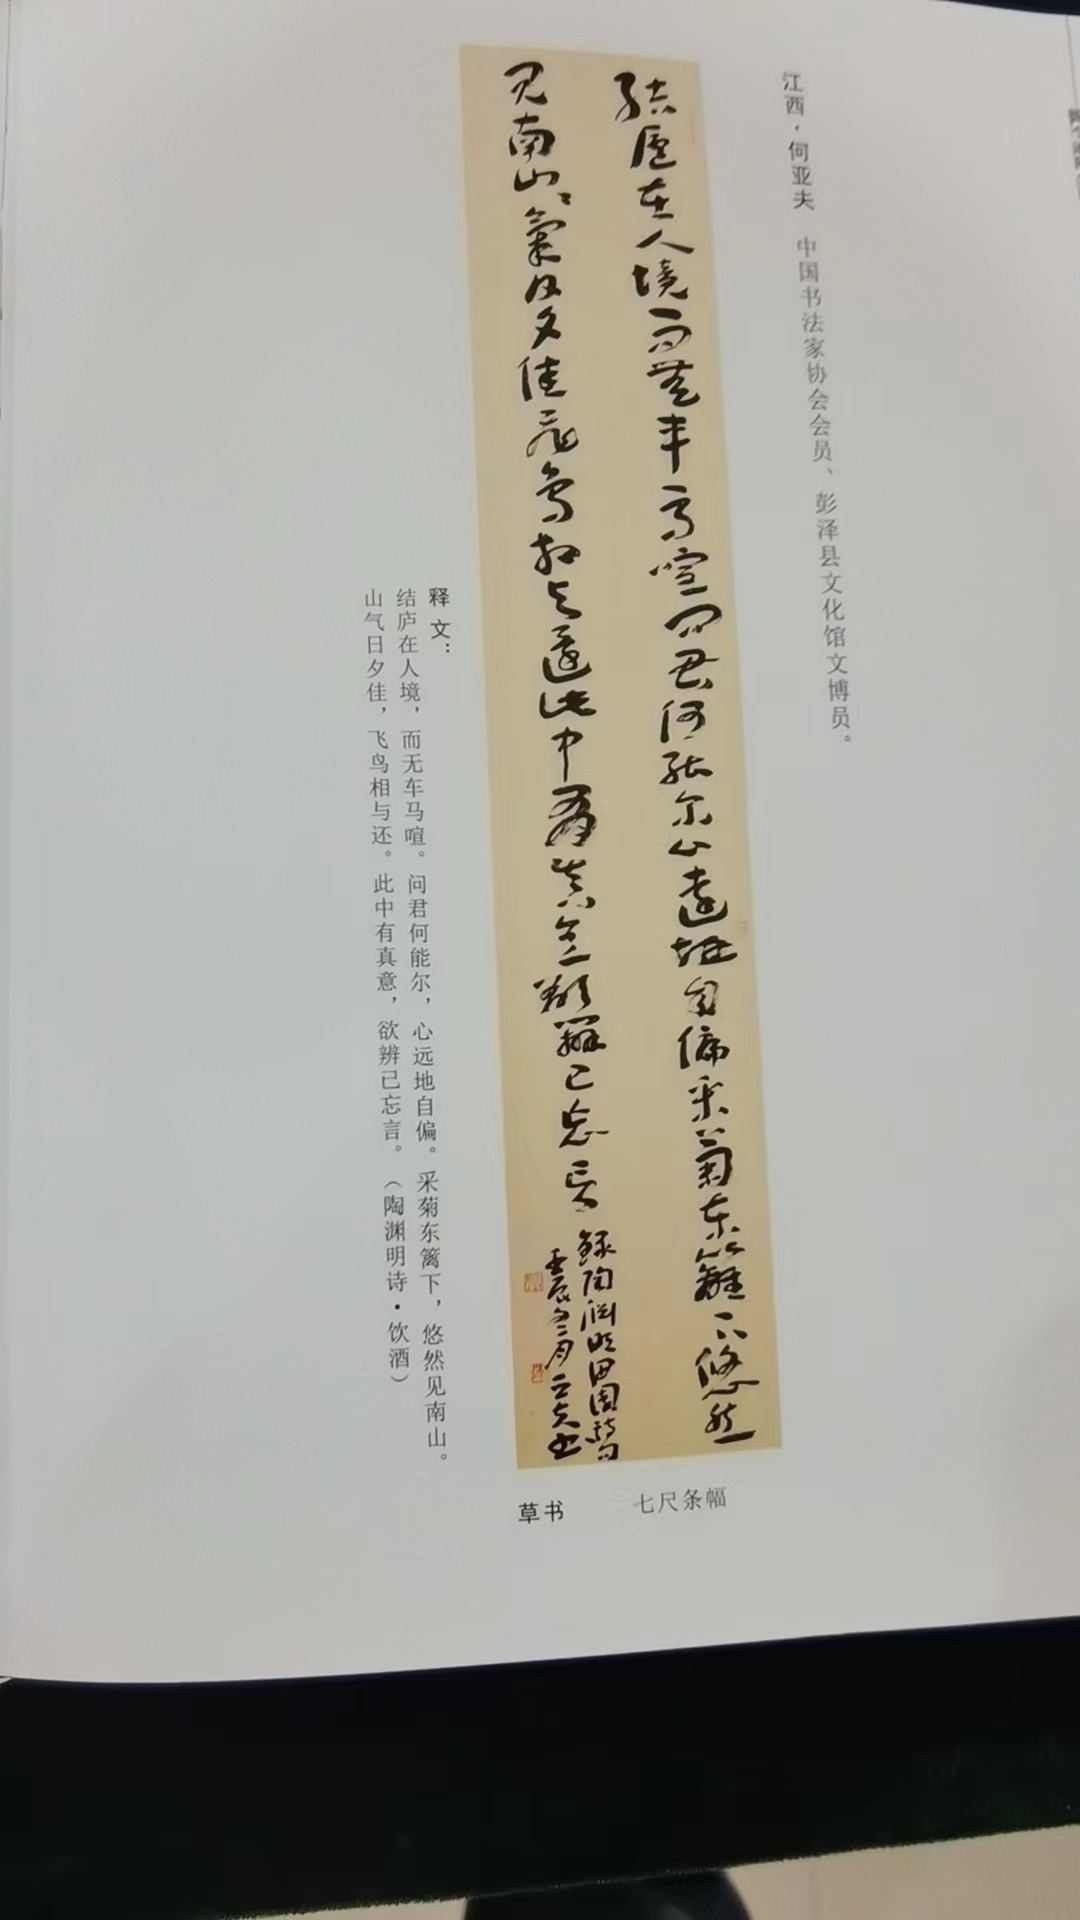 江西·何亚夫 中国书法家协会会员、彭泽县文化馆文博员。
结廬在人境而無車馬喧问君何能尔心遠地自偏采菊东籬下悠然
见南山山氣日夕佳飛鸟相与還此中有真意欲辨已忘言
録陶渊明田園詩句
壬辰冬月亚夫书
释文：
结庐在人境，而无车马喧。问君何能尔，心远地自偏。采菊东篱下，悠然见南山。
山气日夕佳，飞鸟相与还。此中有真意，欲辨已忘言。（陶渊明诗·饮酒）
七尺条幅
草书